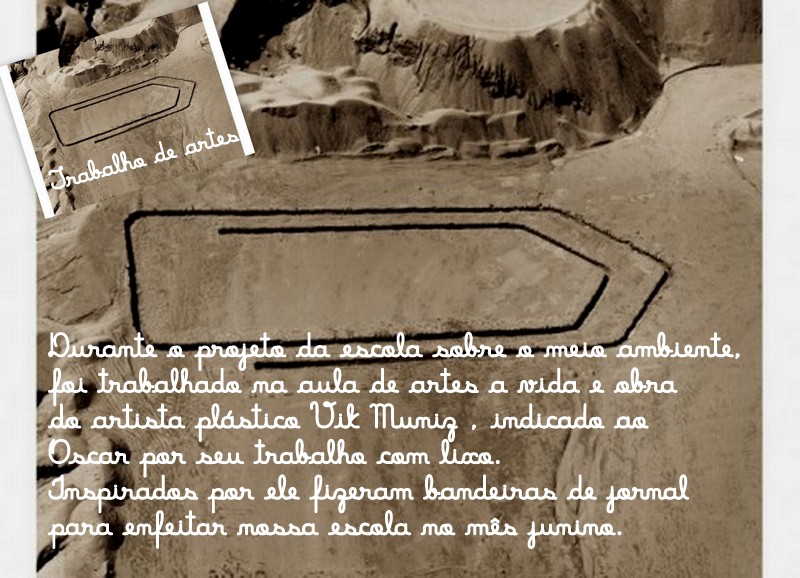 Trabalho de artes
Durante o projeto da escola sobre o meio ambiente,
foi trabalhado na aula de artes a vida e obra
do artista plástico Vik Muniz , indicado ao
Oscar por seu trabalho com lixo.
Inspirados por ele fizeram bandeiras de jornal
para enfeitar nossa escola no mês junino.